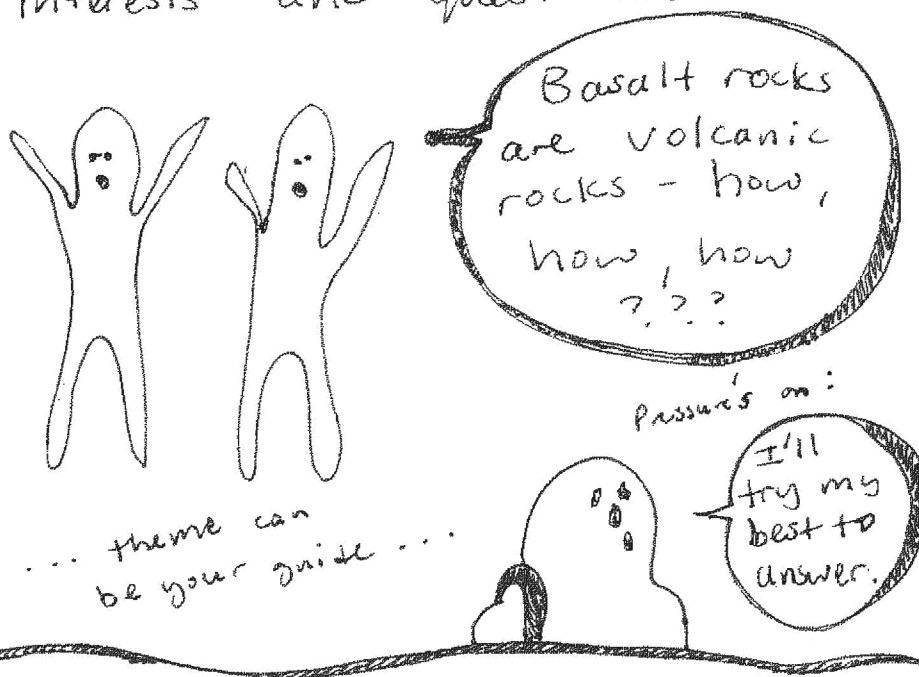 interests and
Basalt rocks
are volcanic
rocks - how,
how, how
???
Pressure's on:
I'll
try my
best to
answer.
... theme can
be your guide ...